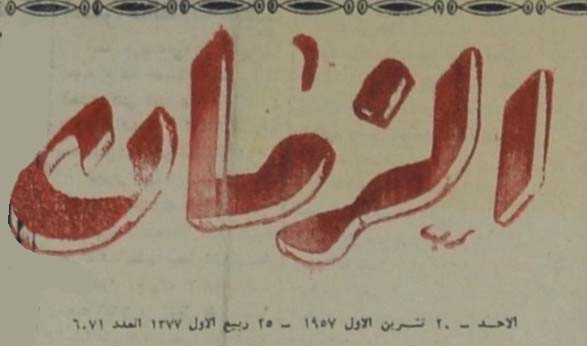 الزمان
الاحد - ٢٠ تشرين الاول ١٩٥٧ - ٢٥ ربيع الاول ١٣٧٧ العدد ٦٠٧١